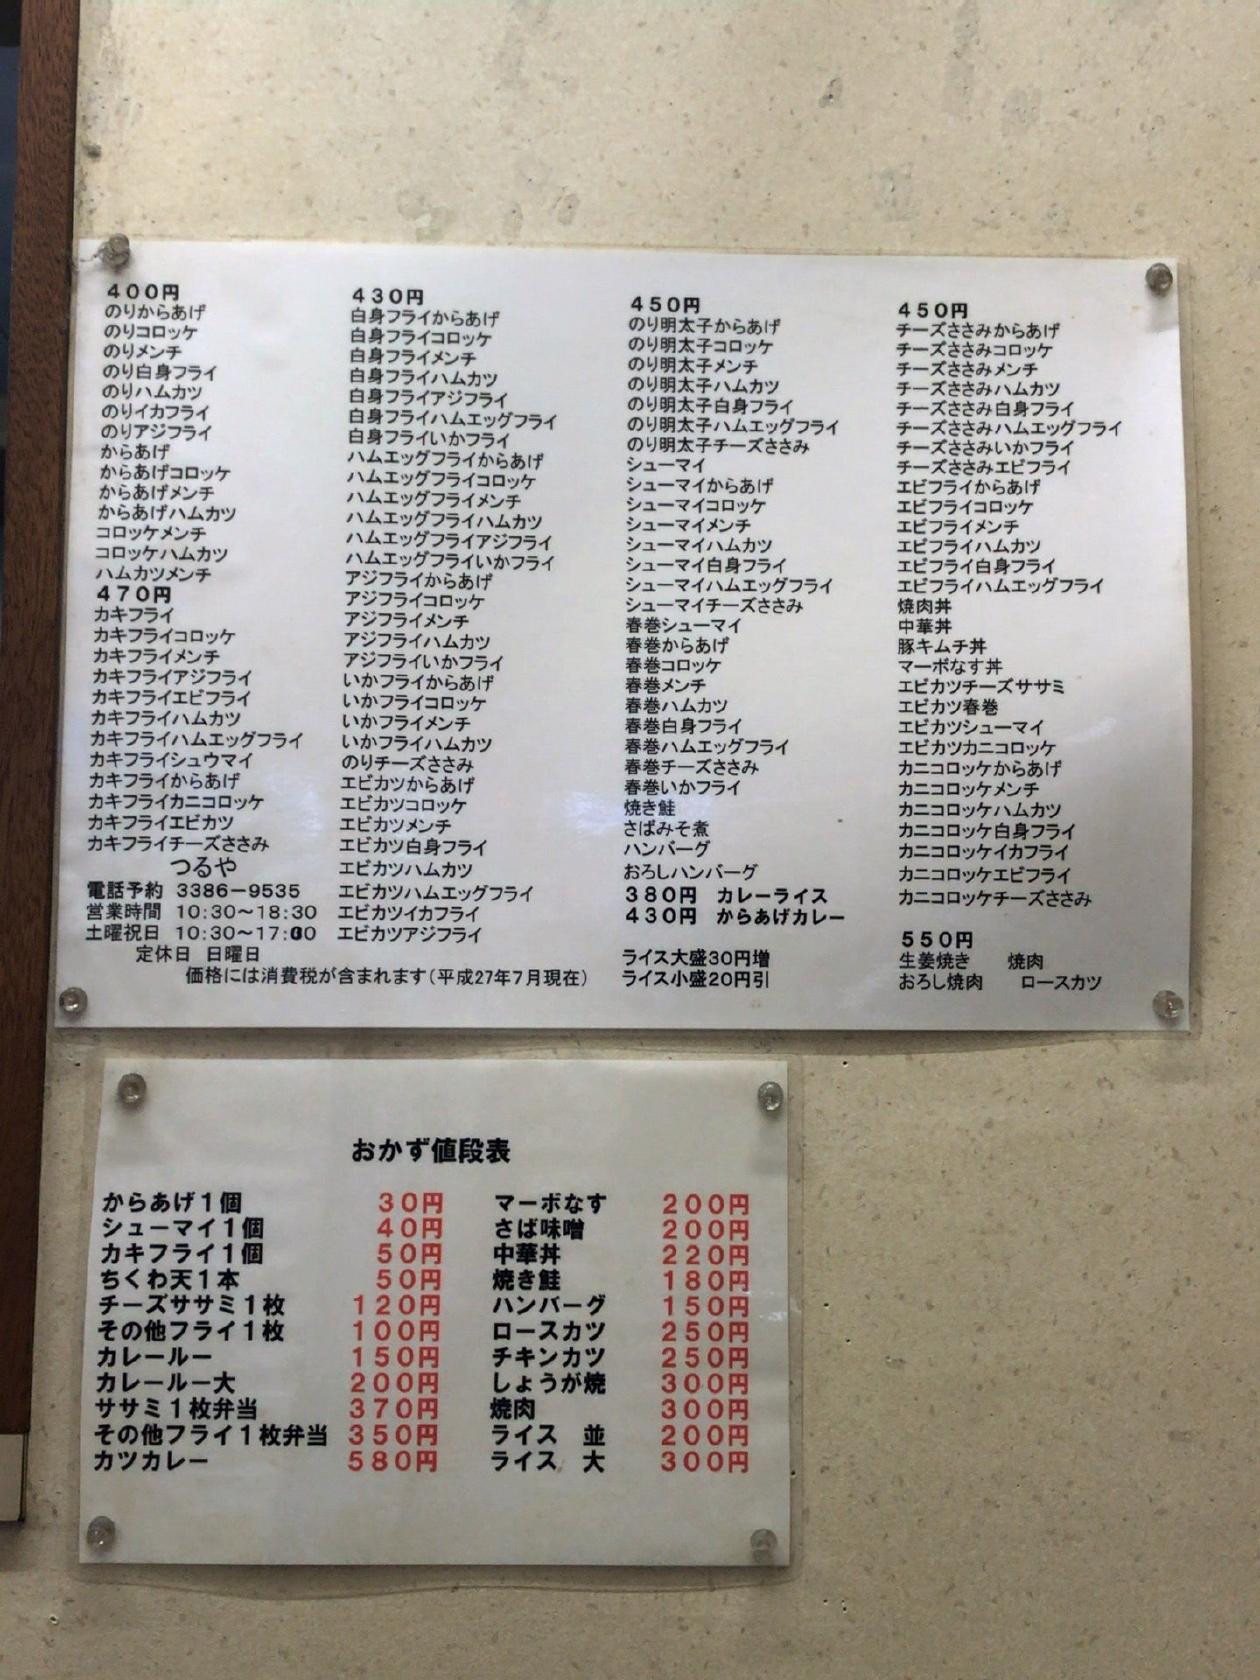 400円
のりからあげ
のりコロッケ
のりメンチ
のり白身フライ
のりハムカツ
のりイカフライ
のりアジフライ
からあげ
からあげコロッケ
からあげメンチ
からあげハムカツ
コロッケメンチ
コロッケハムカツ
ハムカツメンチ
470円
カキフライ
カキフライコロッケ
カキフライメンチ
カキフライアジフライ
カキフライエビフライ
カキフライハムカツ
カキフライハムエッグフライ
カキフライシュウマイ
カキフライからあげ
カキフライカニコロッケ
カキフライエビカツ
カキフライチーズささみ
つるや
電話予約 3386-9535
営業時間 10:30~18:30
土曜祝日 10:30~17:00
定休日 日曜日
価格には消費税が含まれます(平成27年7月現在)
430円
白身フライからあげ
白身フライコロッケ
白身フライメンチ
白身フライハムカツ
白身フライアジフライ
白身フライハムエッグフライ
白身フライいかフライ
ハムエッグフライからあげ
ハムエッグフライコロッケ
ハムエッグフライメンチ
ハムエッグフライハムカツ
ハムエッグフライアジフライ
ハムエッグフライいかフライ
アジフライからあげ
アジフライコロッケ
アジフライメンチ
アジフライハムカツ
アジフライいかフライ
いかフライからあげ
いかフライコロッケ
いかフライメンチ
いかフライハムカツ
のりチーズささみ
エビカツからあげ
エビカツコロッケ
エビカツメンチ
エビカツ白身フライ
エビカツハムカツ
エビカツハムエッグフライ
エビカツイカフライ
エビカツアジフライ
450円
のり明太子からあげ
のり明太子コロッケ
のり明太子メンチ
のり明太子ハムカツ
のり明太子白身フライ
のり明太子ハムエッグフライ
のり明太子チーズささみ
シューマイ
シューマイからあげ
シューマイコロッケ
シューマイメンチ
シューマイハムカツ
シューマイ白身フライ
シューマイハムエッグフライ
シューマイチーズささみ
春巻シューマイ
春巻からあげ
春巻コロッケ
春巻メンチ
春巻ハムカツ
春巻白身フライ
春巻ハムエッグフライ
春巻チーズささみ
春巻いかフライ
焼き鮭
さばみそ煮
ハンバーグ
おろしハンバーグ
380円 カレーライス
430円 からあげカレー
ライス大盛30円増
ライス小盛20円引
450円
チーズささみからあげ
チーズささみコロッケ
チーズささみメンチ
チーズささみハムカツ
チーズささみ白身フライ
チーズささみハムエッグフライ
チーズささみいかフライ
チーズささみエビフライ
エビフライからあげ
エビフライコロッケ
エビフライメンチ
エビフライハムカツ
エビフライ白身フライ
エビフライハムエッグフライ
焼肉丼
中華丼
豚キムチ丼
マーボなす丼
エビカツチーズササミ
エビカツ春巻
エビカツシューマイ
エビカツカニコロッケ
カニコロッケからあげ
カニコロッケメンチ
カニコロッケハムカツ
カニコロッケ白身フライ
カニコロッケイカフライ
カニコロッケエビフライ
カニコロッケチーズささみ
550円
生姜焼き 焼肉
おろし焼肉 ロースカツ
おかず値段表
からあげ1個 30円 マーボなす 200円
シューマイ1個 40円 さば味噌 200円
カキフライ1個 50円 中華丼 220円
ちくわ天1本 50円 焼き鮭 180円
チーズササミ1枚 120円 ハンバーグ 150円
その他フライ1枚 100円 ロースカツ 250円
カレールー 150円 チキンカツ 250円
カレールー大 200円 しょうが焼 300円
ササミ1枚弁当 370円 焼肉 300円
その他フライ1枚弁当 350円 ライス 並 200円
カツカレー 580円 ライス 大 300円